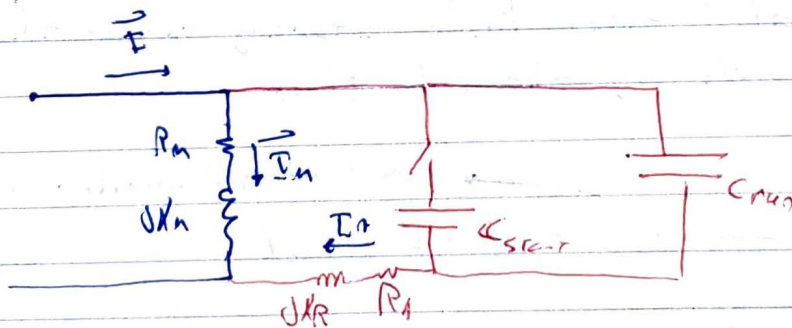 I
Rm
Im
jXm
IA
Cstart
Crun
jXR
RA